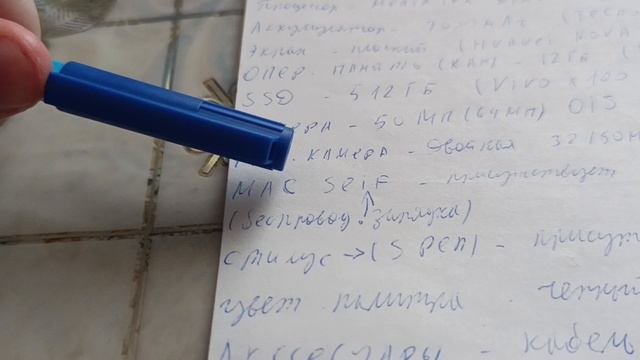 Аккумулятор - 7000 мАх
Экран - плоский (HUAWEI NOVA
ОПЕР. ПАМЯТЬ (RAM) - 12 ГБ (
SSD - 512 ГБ (VIVO X100
- 50 МП (64МП) OIS
. КАМЕРА - Двойная 32/50М
MAC SEiF - присутствует
(беспровод. зарядка)
стилус → (S PEN) - присут
цвет. палитра . черный
Аксессуары - кабель